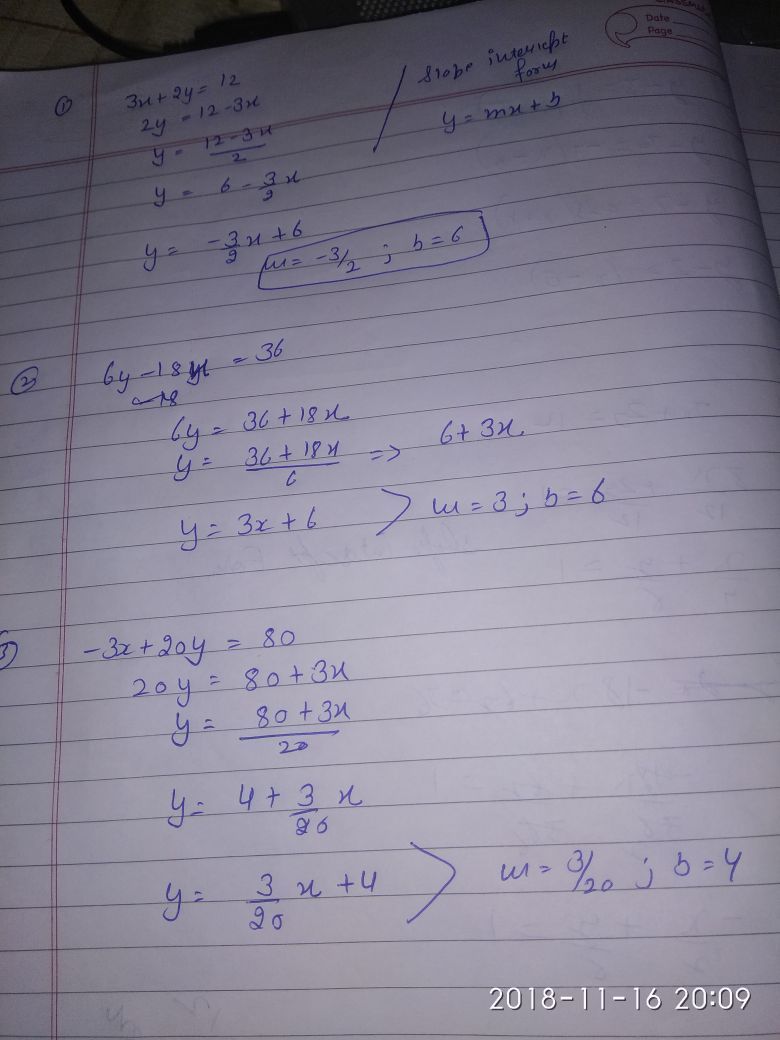 Date
Page
① 3x + 2y = 12
2y = 12 - 3x
y = 12 - 3x / 2
y = 6 - 3/2 x
y = -3/2 x + 6
m = -3/2 ; b = 6
/ slope intercept
form
y = mx + b
② 6y - 18x = 36
6y = 36 + 18x
y = 36 + 18x / 6 => 6 + 3x
y = 3x + 6 > m = 3 ; b = 6
-3x + 20y = 80
20y = 80 + 3x
y = 80 + 3x / 20
y = 4 + 3/20 x
y = 3/20 x + 4 > m = 3/20 ; b = 4
2018-11-16 20:09